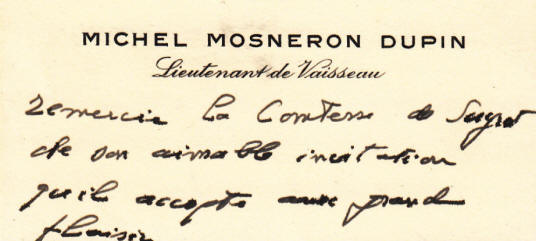 MICHEL MOSNERON DUPIN
Lieutenant de Vaisseau
remercie la Comtesse de
de son aimable invitation
qu'il accepte avec grand
plaisir